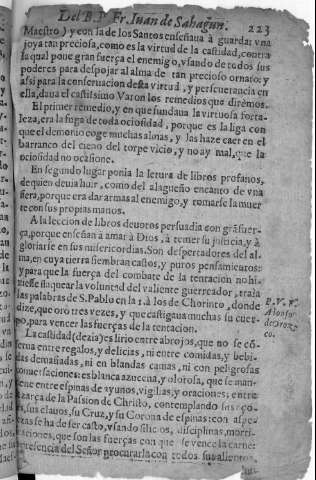 Del B. P. Fr. Iuan de Sahagun. 223
Maestro) y con la de los Santos enseñaua à guardar vna
joya tan preciosa, como es la virtud de la castidad, contra
la qual pone gran fuerça el enemigo, vsando de todos sus
poderes para despojar al alma de tan precioso ornato: y
assi para la conseruacion desta virtud, y perseuerancia en
ella, daua el castissimo Varon los remedios que dirèmos.
El primer remedio, y en que fundaua la virtuosa forta-
leza, era la fuga de toda ociosidad, porque es la liga con
que el demonio coge muchas almas, y las haze caer en el
barranco del cieno del torpe vicio, y no ay mal, que la
ociosidad no ocasione.
En segundo lugar ponia la letura de libros profanos,
de quien deuia huir, como del alagueño encanto de vna
fiera, porque era dar armas al enemigo, y tomarse la muer
te con sus propias manos.
A la leccion de libros deuotos persuadia con grã fuer-
ça, porque enseñan à amar à Dios, à temer su justicia, y à
gloriarse en sus misericordias. Son despertadores del al-
ma, en cuya tierra siembran castos, y puros pensamientos:
y para que la fuerça del combate de la tentacion no hi-
ziesse flaquear la voluntad del valiente guerreador, traia
las palabras de S. Pablo en la 1. à los de Chorinto, donde
dize, que orò tres vezes, y que castigaua mucho su cuer-
po, para vencer las fuerças de la tentacion.
B. V. F.
Alonso
de Oroz
co.
La castidad (dezia) es lirio entre abrojos, que no se cõ-
serua entre regalos, y delicias, ni entre comidas, y bebi-
das demasiadas, ni en blandas camas, ni con peligrosas
conuersaciones: es blanca azuzena, y olorosa, que se man-
tiene entre espinas de ayunos, vigilias, y oraciones; entre
çarça de la Passion de Christo, contemplando sus
sus clauos, su Cruz, y su Corona de espinas: con aspe-
rezas se ha de ser casto, vsando silicios, disciplinas, morti-
ficaciones, que son las fuerças con que se vence la carne:
presencia del Señor procurarla con todos sus alientos,